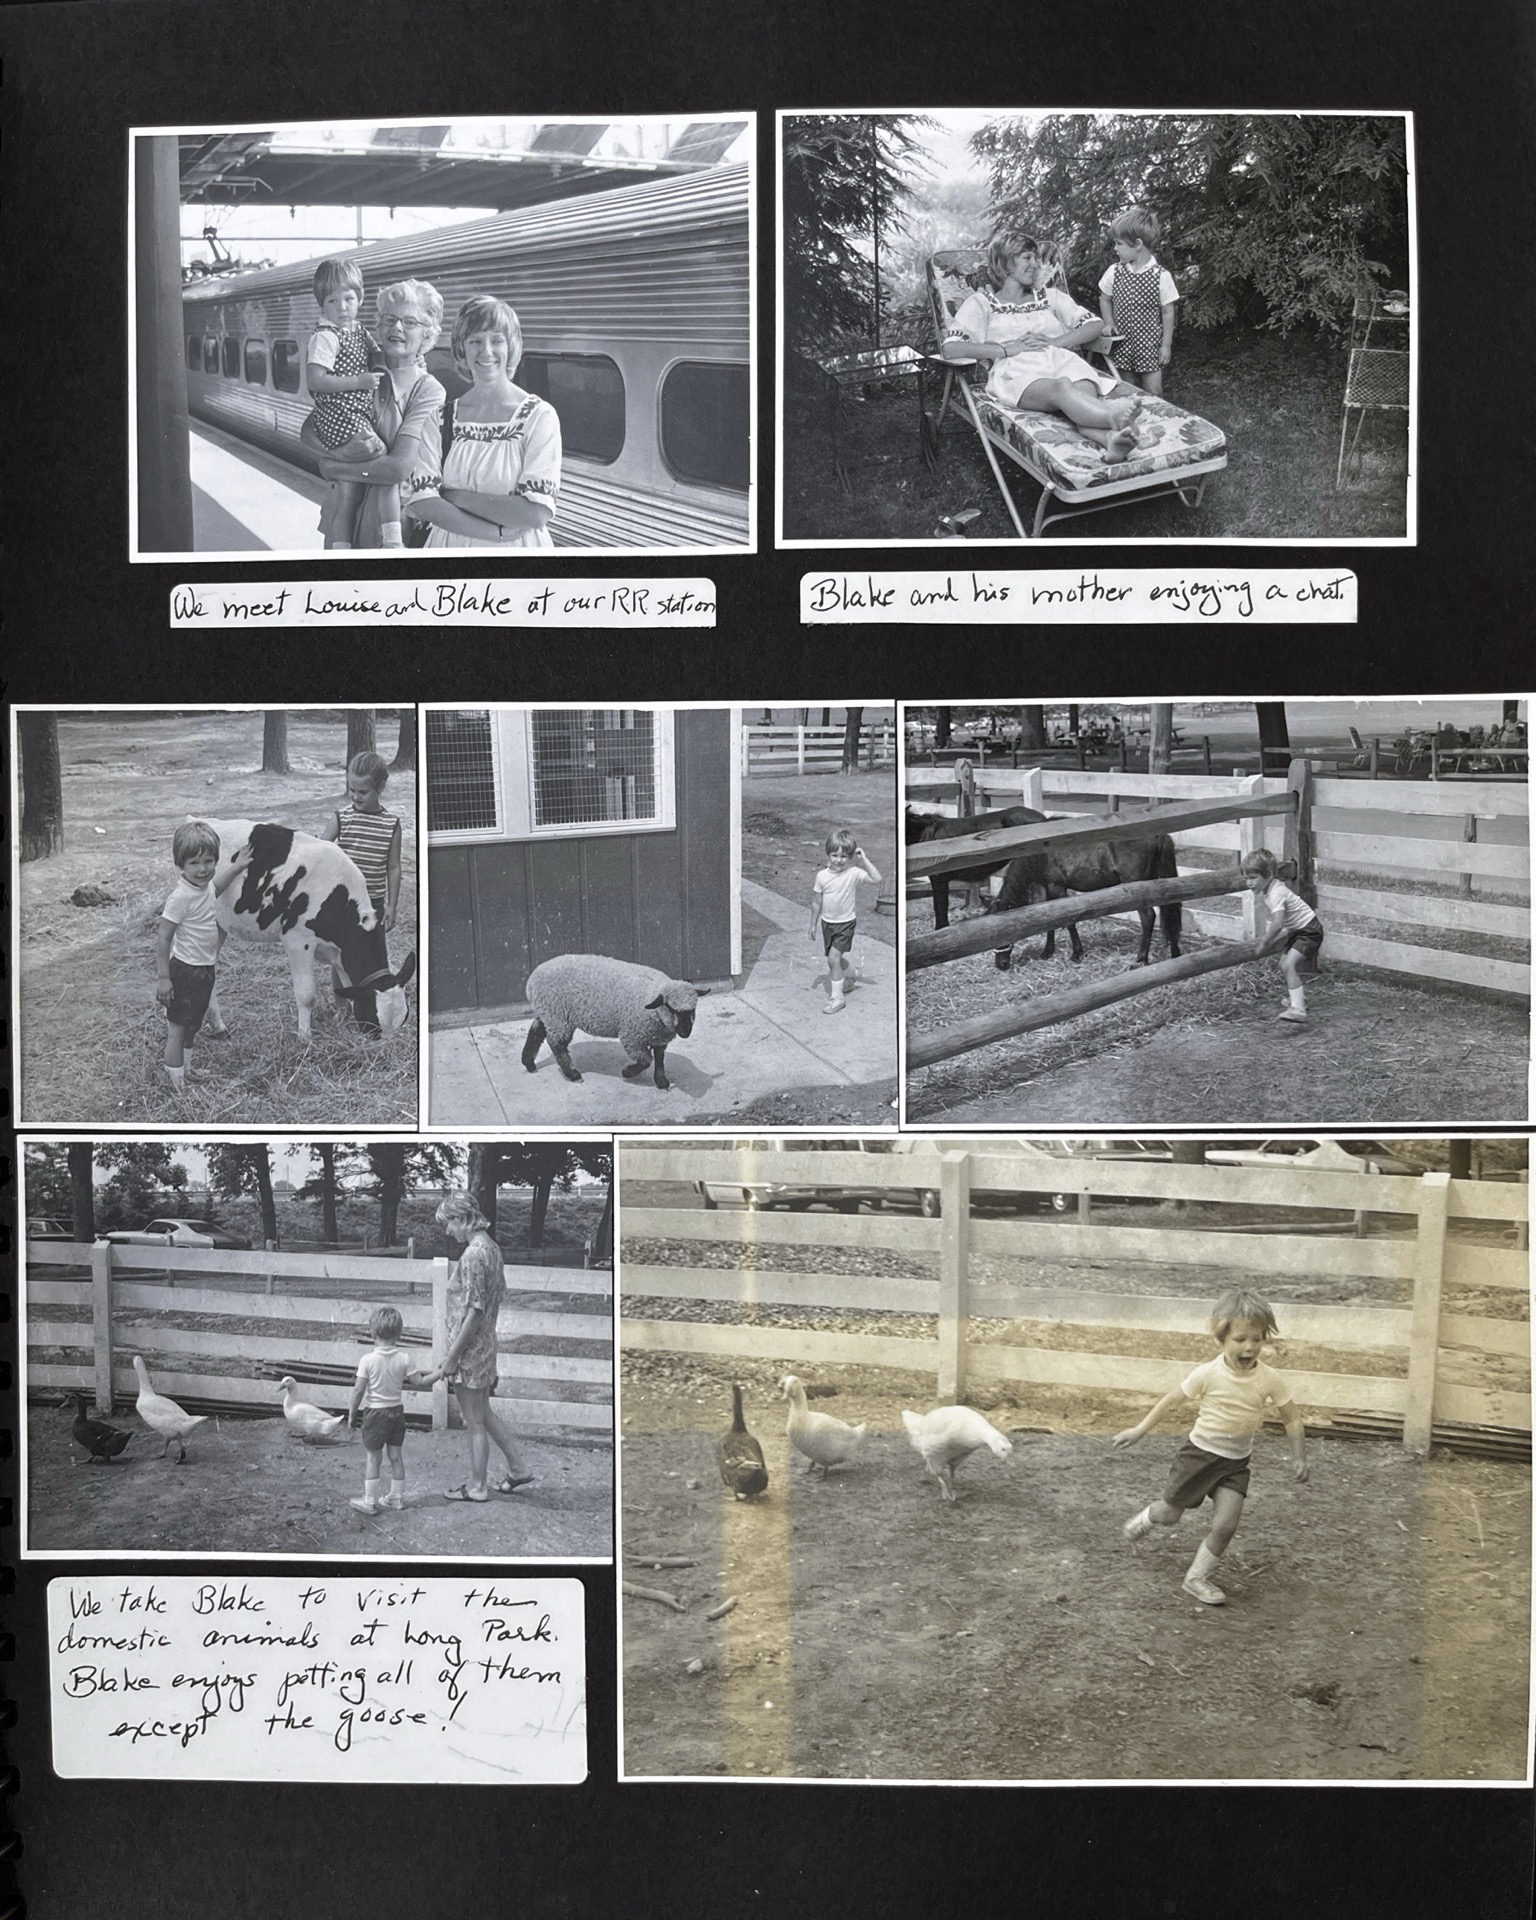 We meet Louise and Blake at our RR station
Blake and his mother enjoying a chat.
We take Blake to visit the
domestic animals at Long Park.
Blake enjoys petting all of them
except the goose!